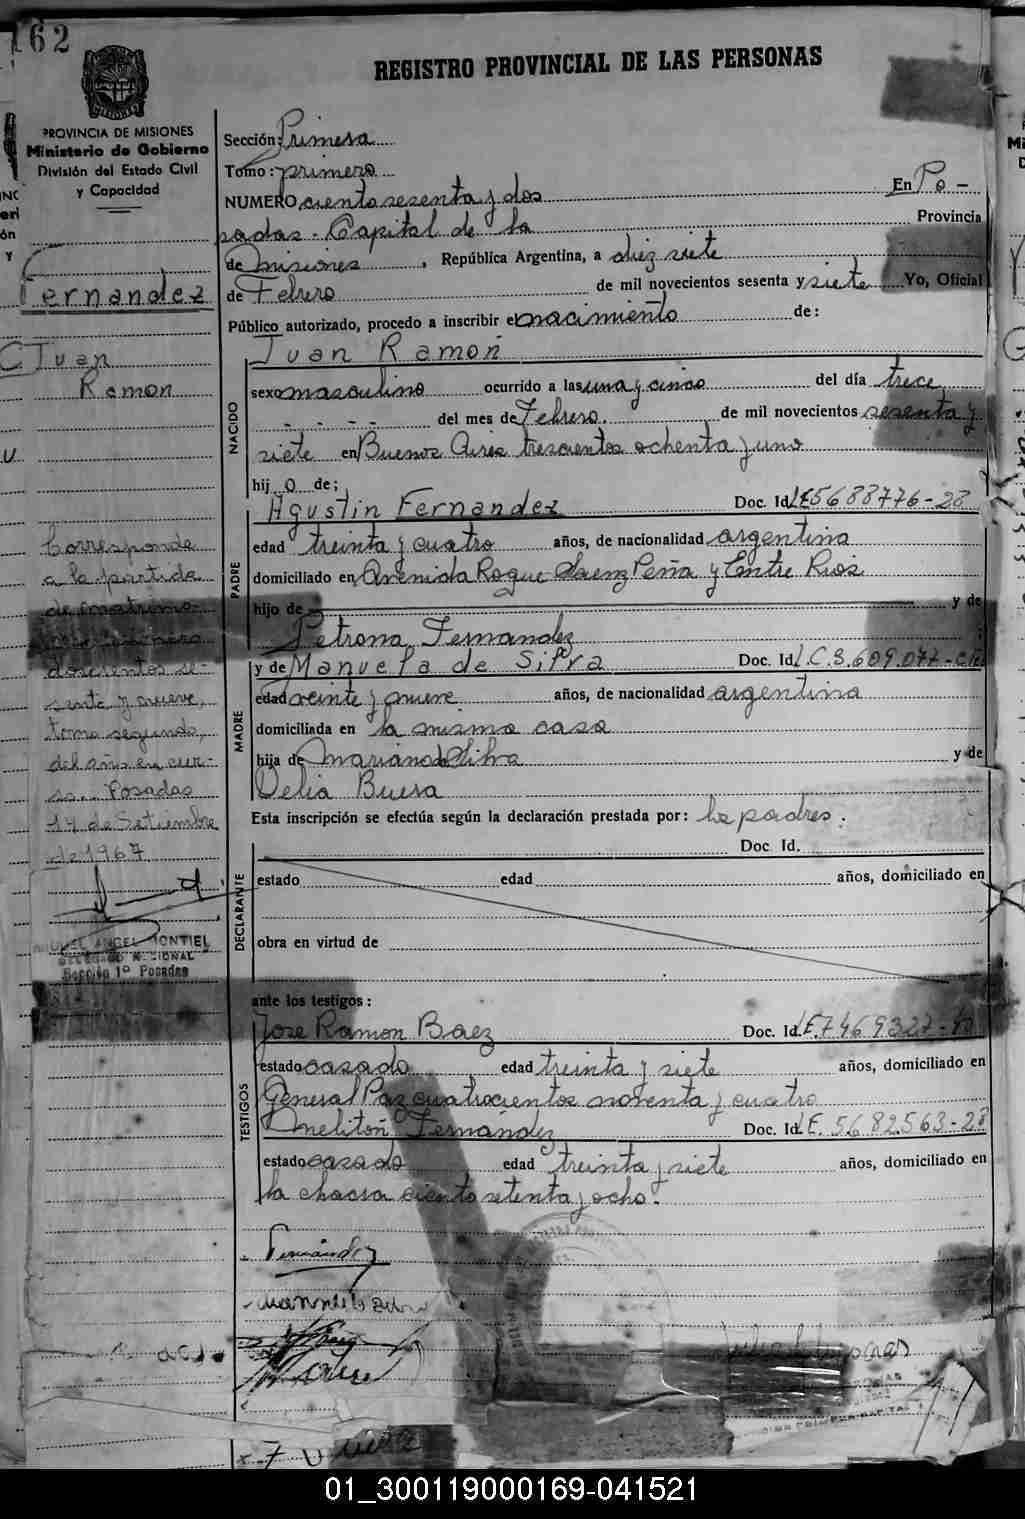 162
REGISTRO PROVINCIAL DE LAS PERSONAS
PROVINCIA DE MISIONES
Ministerio de Gobierno
División del Estado Civil
y Capacidad
Fernandez
Juan
Ramon
Corresponde
a la partida
de matrimo-
doscientos se-
senta y nueve,
tomo segundo,
del año en cur-
so. Posadas
14 de Setiembre
de 1967
MIGUEL ANGEL MONTIEL
Sección 1º Posadas
Sección: Primera
Tomo: primero
NUMERO ciento sesenta y dos En Po-
sadas - Capital de la Provincia
de Misiones, República Argentina, a diez siete
de Febrero de mil novecientos sesenta y siete Yo, Oficial
Público autorizado, procedo a inscribir el nacimiento de:
Juan Ramon
NACIDO
sexo masculino ocurrido a las una y cinco del día trece
- - - - del mes de Febrero. de mil novecientos sesenta y
siete en Buenos Aires trescientos ochenta y uno
hijo de:
Agustin Fernandez Doc. Id. LE5688776-28
PADRE
edad treinta y cuatro años, de nacionalidad argentina
domiciliado en Avenida Roque Saenz Peña y Entre Rios
hijo de y de
Petrona Fernandez
y de Manuela de Silva Doc. Id. L.C.3.609.077-
MADRE
edad veinte y nueve años, de nacionalidad argentina
domiciliada en la misma casa
hija de Mariano Silva y de
Delia Buera
Esta inscripción se efectúa según la declaración prestada por: los padres.
Doc. Id.
DECLARANTE
estado edad años, domiciliado en
obra en virtud de
ante los testigos:
Jose Ramon Baez Doc. Id. LE7469327-40
TESTIGOS
estado casado edad treinta y siete años, domiciliado en
General Paz cuatrocientos noventa y cuatro
Melitón Fernandez Doc. Id. LE. 5682563-28
estado casado edad treinta y siete años, domiciliado en
la chacra ciento setenta y ocho.
Fernández
01_300119000169-041521